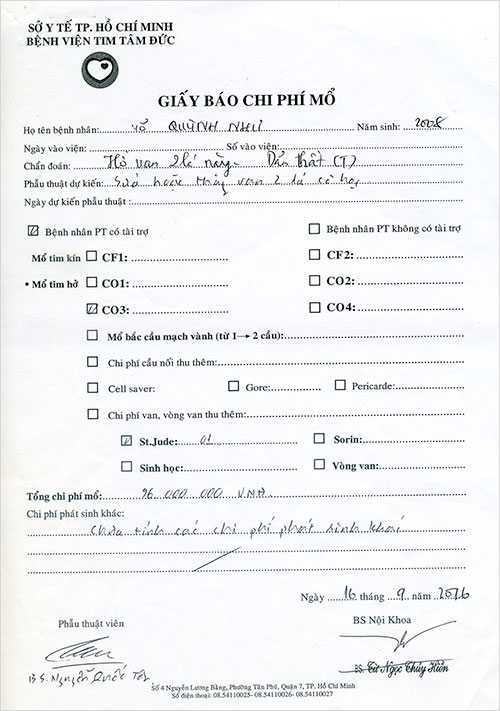 SỞ Y TẾ TP. HỒ CHÍ MINH
BỆNH VIỆN TIM TÂM ĐỨC
GIẤY BÁO CHI PHÍ MỔ
Họ tên bệnh nhân: VÕ QUỲNH NHƯ Năm sinh: 2008
Ngày vào viện: Số vào viện:
Chẩn đoán: Hở van 2 lá nặng - Dãn thất (T)
Phẫu thuật dự kiến: Sửa hoặc thay van 2 lá cơ học
Ngày dự kiến phẫu thuật :
Bệnh nhân PT có tài trợ Bệnh nhân PT không có tài trợ
Mổ tim kín CF1: CF2:
• Mổ tim hở CO1: CO2:
CO3: CO4:
Mổ bắc cầu mạch vành (từ 1→ 2 cầu):
Chi phí cầu nối thu thêm:
Cell saver: Gore: Pericarde:
Chi phí van, vòng van thu thêm:
St.Jude: 01 Sorin:
Sinh học: Vòng van:
Tổng chi phí mổ: 96.000.000 VNĐ.
Chi phí phát sinh khác:
Chưa tính các chi phí phát sinh khác
Ngày 16 tháng 9 năm 2016
Phẫu thuật viên BS Nội Khoa
BS. Nguyễn Quốc BS. Từ Ngọc Thúy Hiền
Số 4 Nguyễn Lương Bằng, Phường Tân Phú, Quận 7, TP. Hồ Chí Minh
Số điện thoại: 08.54110025- 08.54110026- 08.54110027